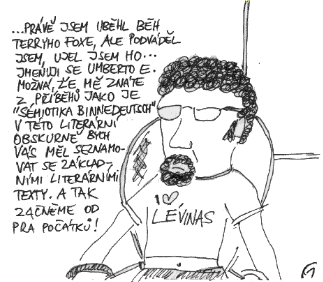 ...PRÁVĚ JSEM UBĚHL BĚH
TERRYHO FOXE, ALE PODVÁDĚL
JSEM, UJEL JSEM HO...
JMENUJI SE UMBERTO E.
MOŽNÁ, ŽE MĚ ZNÁTE
Z PŘÍBĚHŮ JAKO JE
"SÉMIOTIKA BINNEDEUTSCH"
V TÉTO LITERÁRNÍ
OBSKURNĚ BYCH
VÁS MĚL SEZNAMO-
VAT SE ZÁKLAD-
NÍMI LITERÁRNÍMI
TEXTY. A TAK
ZAČNĚME OD
PRA POČÁTKŮ!
I ♡
LÉVINAS
1